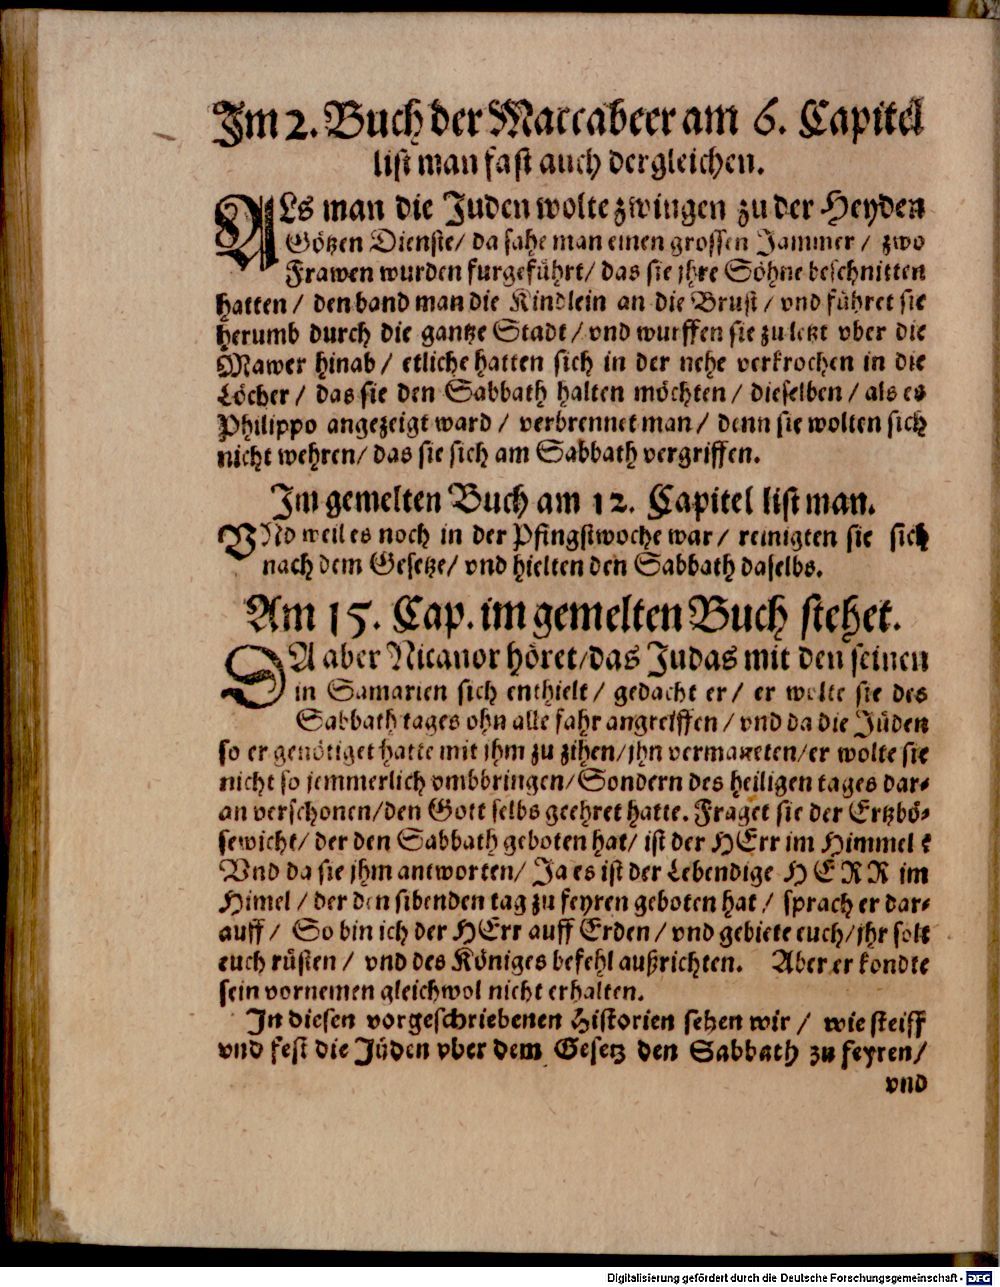 Im 2. Buch der Maccabeer am 6. Capitel
list man fast auch dergleichen.
ALs man die Juden wolte zwingen zu der Heyden
Götzen Dienste/ da sahe man einen grossen Jammer / zwo
Frawen wurden furgeführt/ das sie jhre Söhne beschnitten
hatten / den band man die Kindlein an die Brust / vnd führet sie
herumb durch die gantze Stadt / vnd wurffen sie zu letzt vber die
Mawer hinab / etliche hatten sich in der nehe verkrochen in die
Löcher / das sie den Sabbath halten möchten / dieselben / als es
Philippo angezeigt ward / verbrennet man / denn sie wolten sich
nicht wehren/ das sie sich am Sabbath vergriffen.
Im gemelten Buch am 12. Capitel list man.
VNd weil es noch in der Pfingstwoche war / reinigten sie sich
nach dem Gesetze/ vnd hielten den Sabbath daselbs.
Am 15. Cap. im gemelten Buch stehet.
DA aber Nicanor höret/das Judas mit den seinen
in Samarien sich enthielt / gedacht er / er wolte sie des
Sabbath tages ohn alle fahr angreiffen / vnd da die Jüden
so er genötiget hatte mit jhm zu zihen/jhn vermaneten/er wolte sie
nicht so jemmerlich vmbbringen/Sondern des heiligen tages dar-
an verschonen/den Gott selbs geehret hatte. Fraget sie der Ertzbö-
sewicht/ der den Sabbath geboten hat/ ist der HErr im Himmel ?
Vnd da sie jhm antworten/ Ja es ist der Lebendige HERR im
Himel / der den sibenden tag zu feyren geboten hat / sprach er dar-
auff / So bin ich der HErr auff Erden / vnd gebiete euch/jhr solt
euch rüsten / vnd des Königes befehl außrichten. Aber er kondte
sein vornemen gleichwol nicht erhalten.
In diesen vorgeschriebenen Historien sehen wir / wie steiff
vnd fest die Jüden vber dem Gesetz den Sabbath zu feyren/
vnd
Digitalisierung gefördert durch die Deutsche Forschungsgemeinschaft - DFG